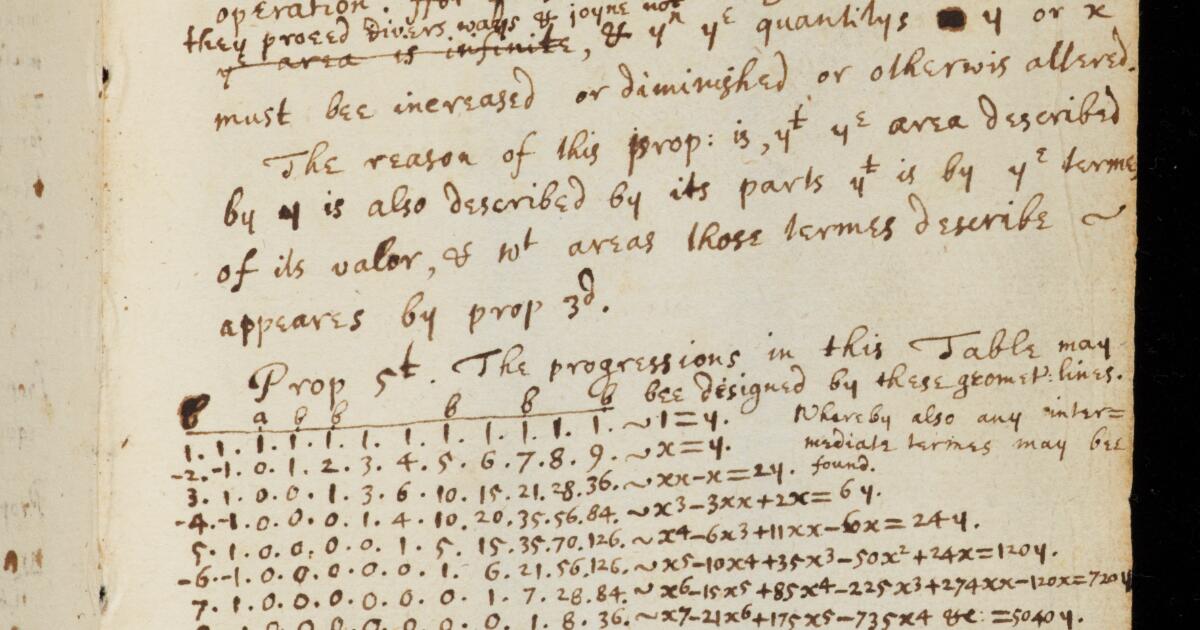 operation.
they proced divers ways & joyne not
yᵉ area is infinite, & yⁿ yᵉ quantitys y or x
must bee increased or diminished or otherwis altered.
The reason of this prop: is, yᵗ yᵉ area described
by y is also described by its parts yᵗ is by yᵉ termes
of its valor, & wᵗ areas those termes describe ~
appeares by prop 3ᵈ.
Prop 5ᵗ. The progressions in this Table may
bee designed by these geomet: lines.
b a b b b b b
1. 1. 1. 1. 1. 1. 1. 1. 1. 1. 1. 1. ~1=y. Whereby also any inter=
-2. -1. 0. 1. 2. 3. 4. 5. 6. 7. 8. 9. ~x=y. mediate termes may bee
3. 1. 0. 0. 1. 3. 6. 10. 15. 21. 28. 36. ~xx-x=2y. found.
-4. -1. 0. 0. 0. 1. 4. 10. 20. 35. 56. 84. ~x³-3xx+2x=6y.
5. 1. 0. 0. 0. 0. 1. 5. 15. 35. 70. 126. ~x4-6x³+11xx-6x=24y.
-6. -1. 0. 0. 0. 0. 0. 1. 6. 21. 56. 126. ~x5-10x4+35x³-50x²+24x=120y.
7. 1. 0. 0. 0. 0. 0. 0. 1. 7. 28. 84. ~x6-15x5+85x4-225x³+274xx-120x=720y
0. 0. 0. 0. 0. 0. 1. 8. 36. ~x7-21x6+175x5-735x4 &c: =5040y.